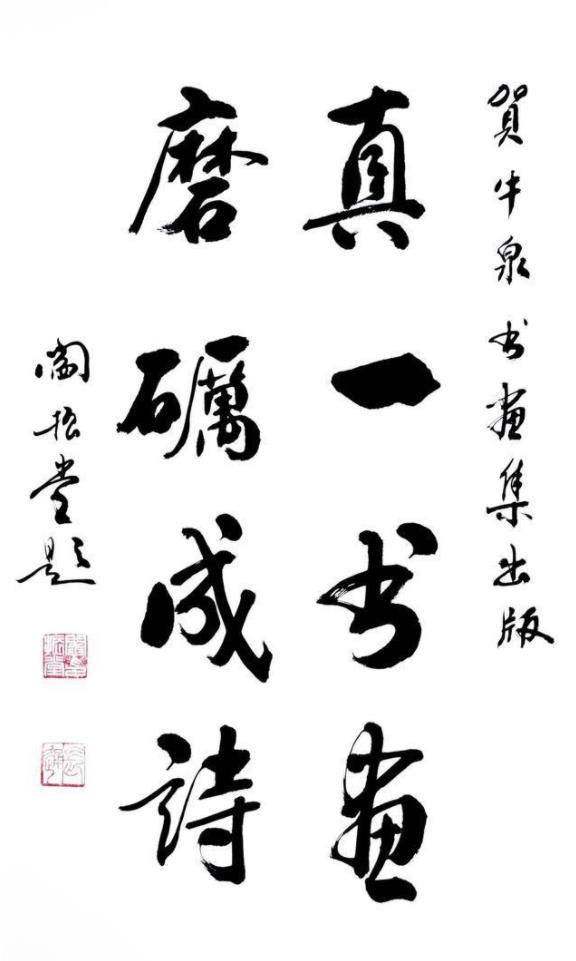 賀牛泉书画集出版
真一书画
磨礪成詩
阎松堂题